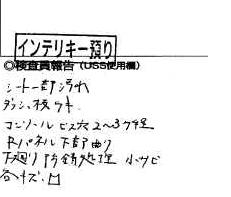 インテリキー預り
◎検査員報告(USS使用欄)
シート一部汚れ
ダッシュ板キズ
コンソールビス穴2~3ケ程
Rパネル下部曲り
下廻り防錆処理 小サビ
各キズ.凹